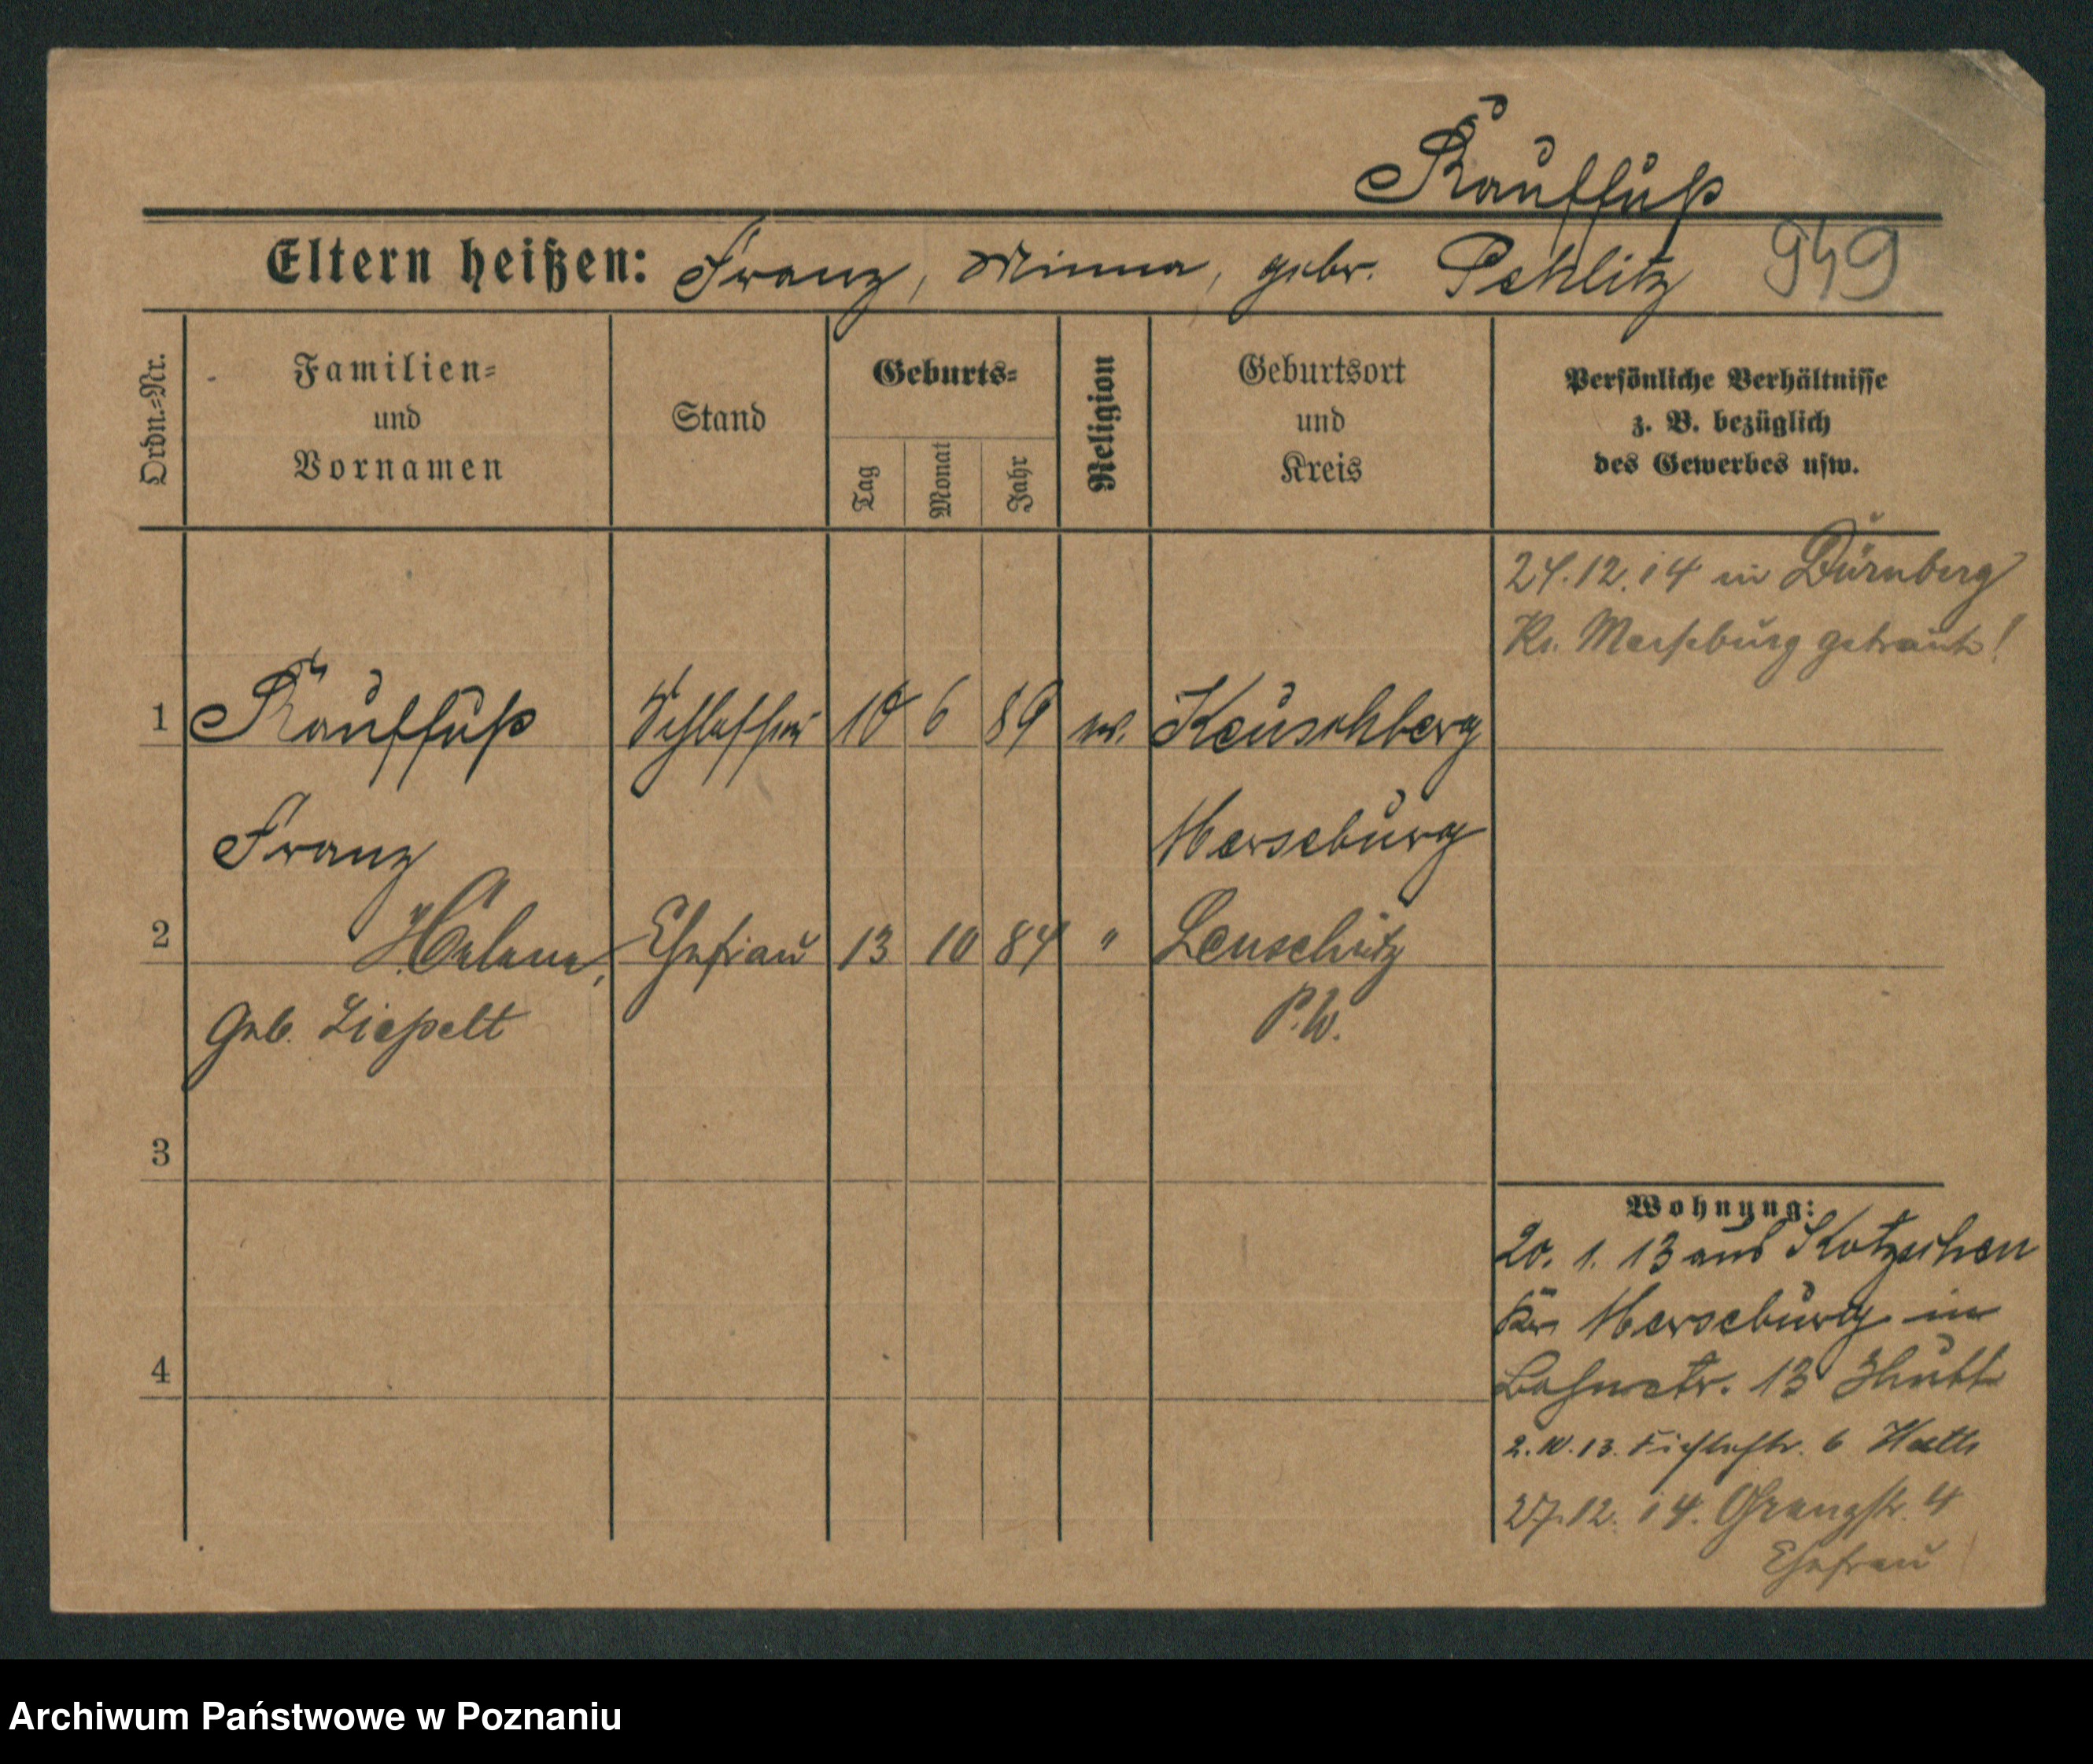 Kauffuß
Eltern heißen: Franz, Minna, gebr. Pehlitz 949
Ordn.=Nr.
Familien=
und
Vornamen
Stand
Geburts=
Tag
Monat
Jahr
Religion
Geburtsort
und
Kreis
Persönliche Verhältnisse
z. B. bezüglich
des Gewerbes usw.
24.12.14 in Dürnberg
Kr. Merseburg getraut!
1 Kauffuß Schlosser 10 6 89 ev. Keuschberg
Franz Merseburg
2 Helene, Ehefrau 13 10 84 " Leuschütz
Geb. Liepelt P.W.
3
Wohnung:
20. 1. 13 aus Kotzschen
Kr. Merseburg in
4
Bahnstr. 13
2.10.13. Fichtestr. 6
27.12.14. Granzstr. 4
Ehefrau
Archiwum Państwowe w Poznaniu